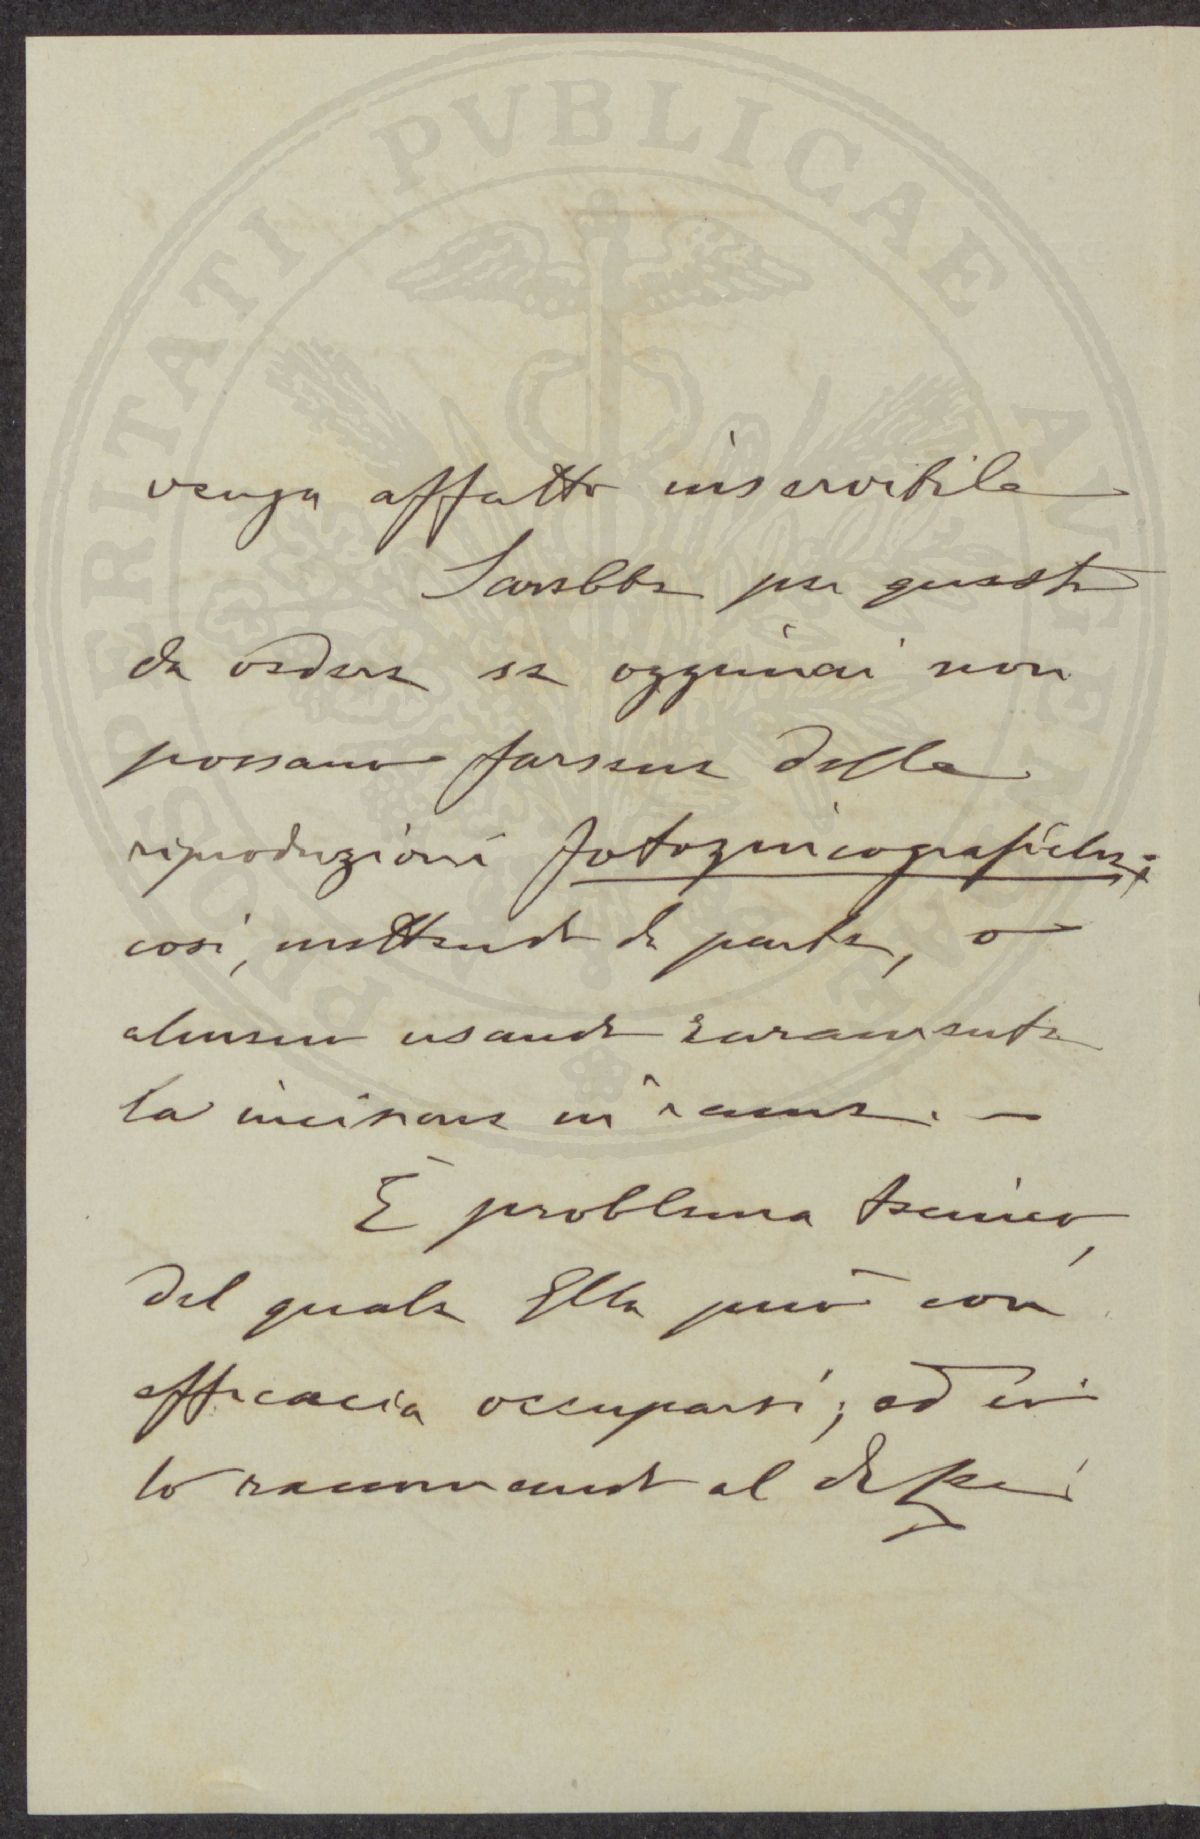 PROSPERITATI PUBLICAE AUGENDAE
venga affatto inservibile
Sarebbe per questo
da vedere se oggimai non
possano farsene delle
riproduzioni fotozincografiche;
così, mettendo da parte, o
almeno usando raramente
la incisione in rame. —
È problema tecnico,
del quale Ella può con
efficacia occuparsi; ed io
lo raccomando al di